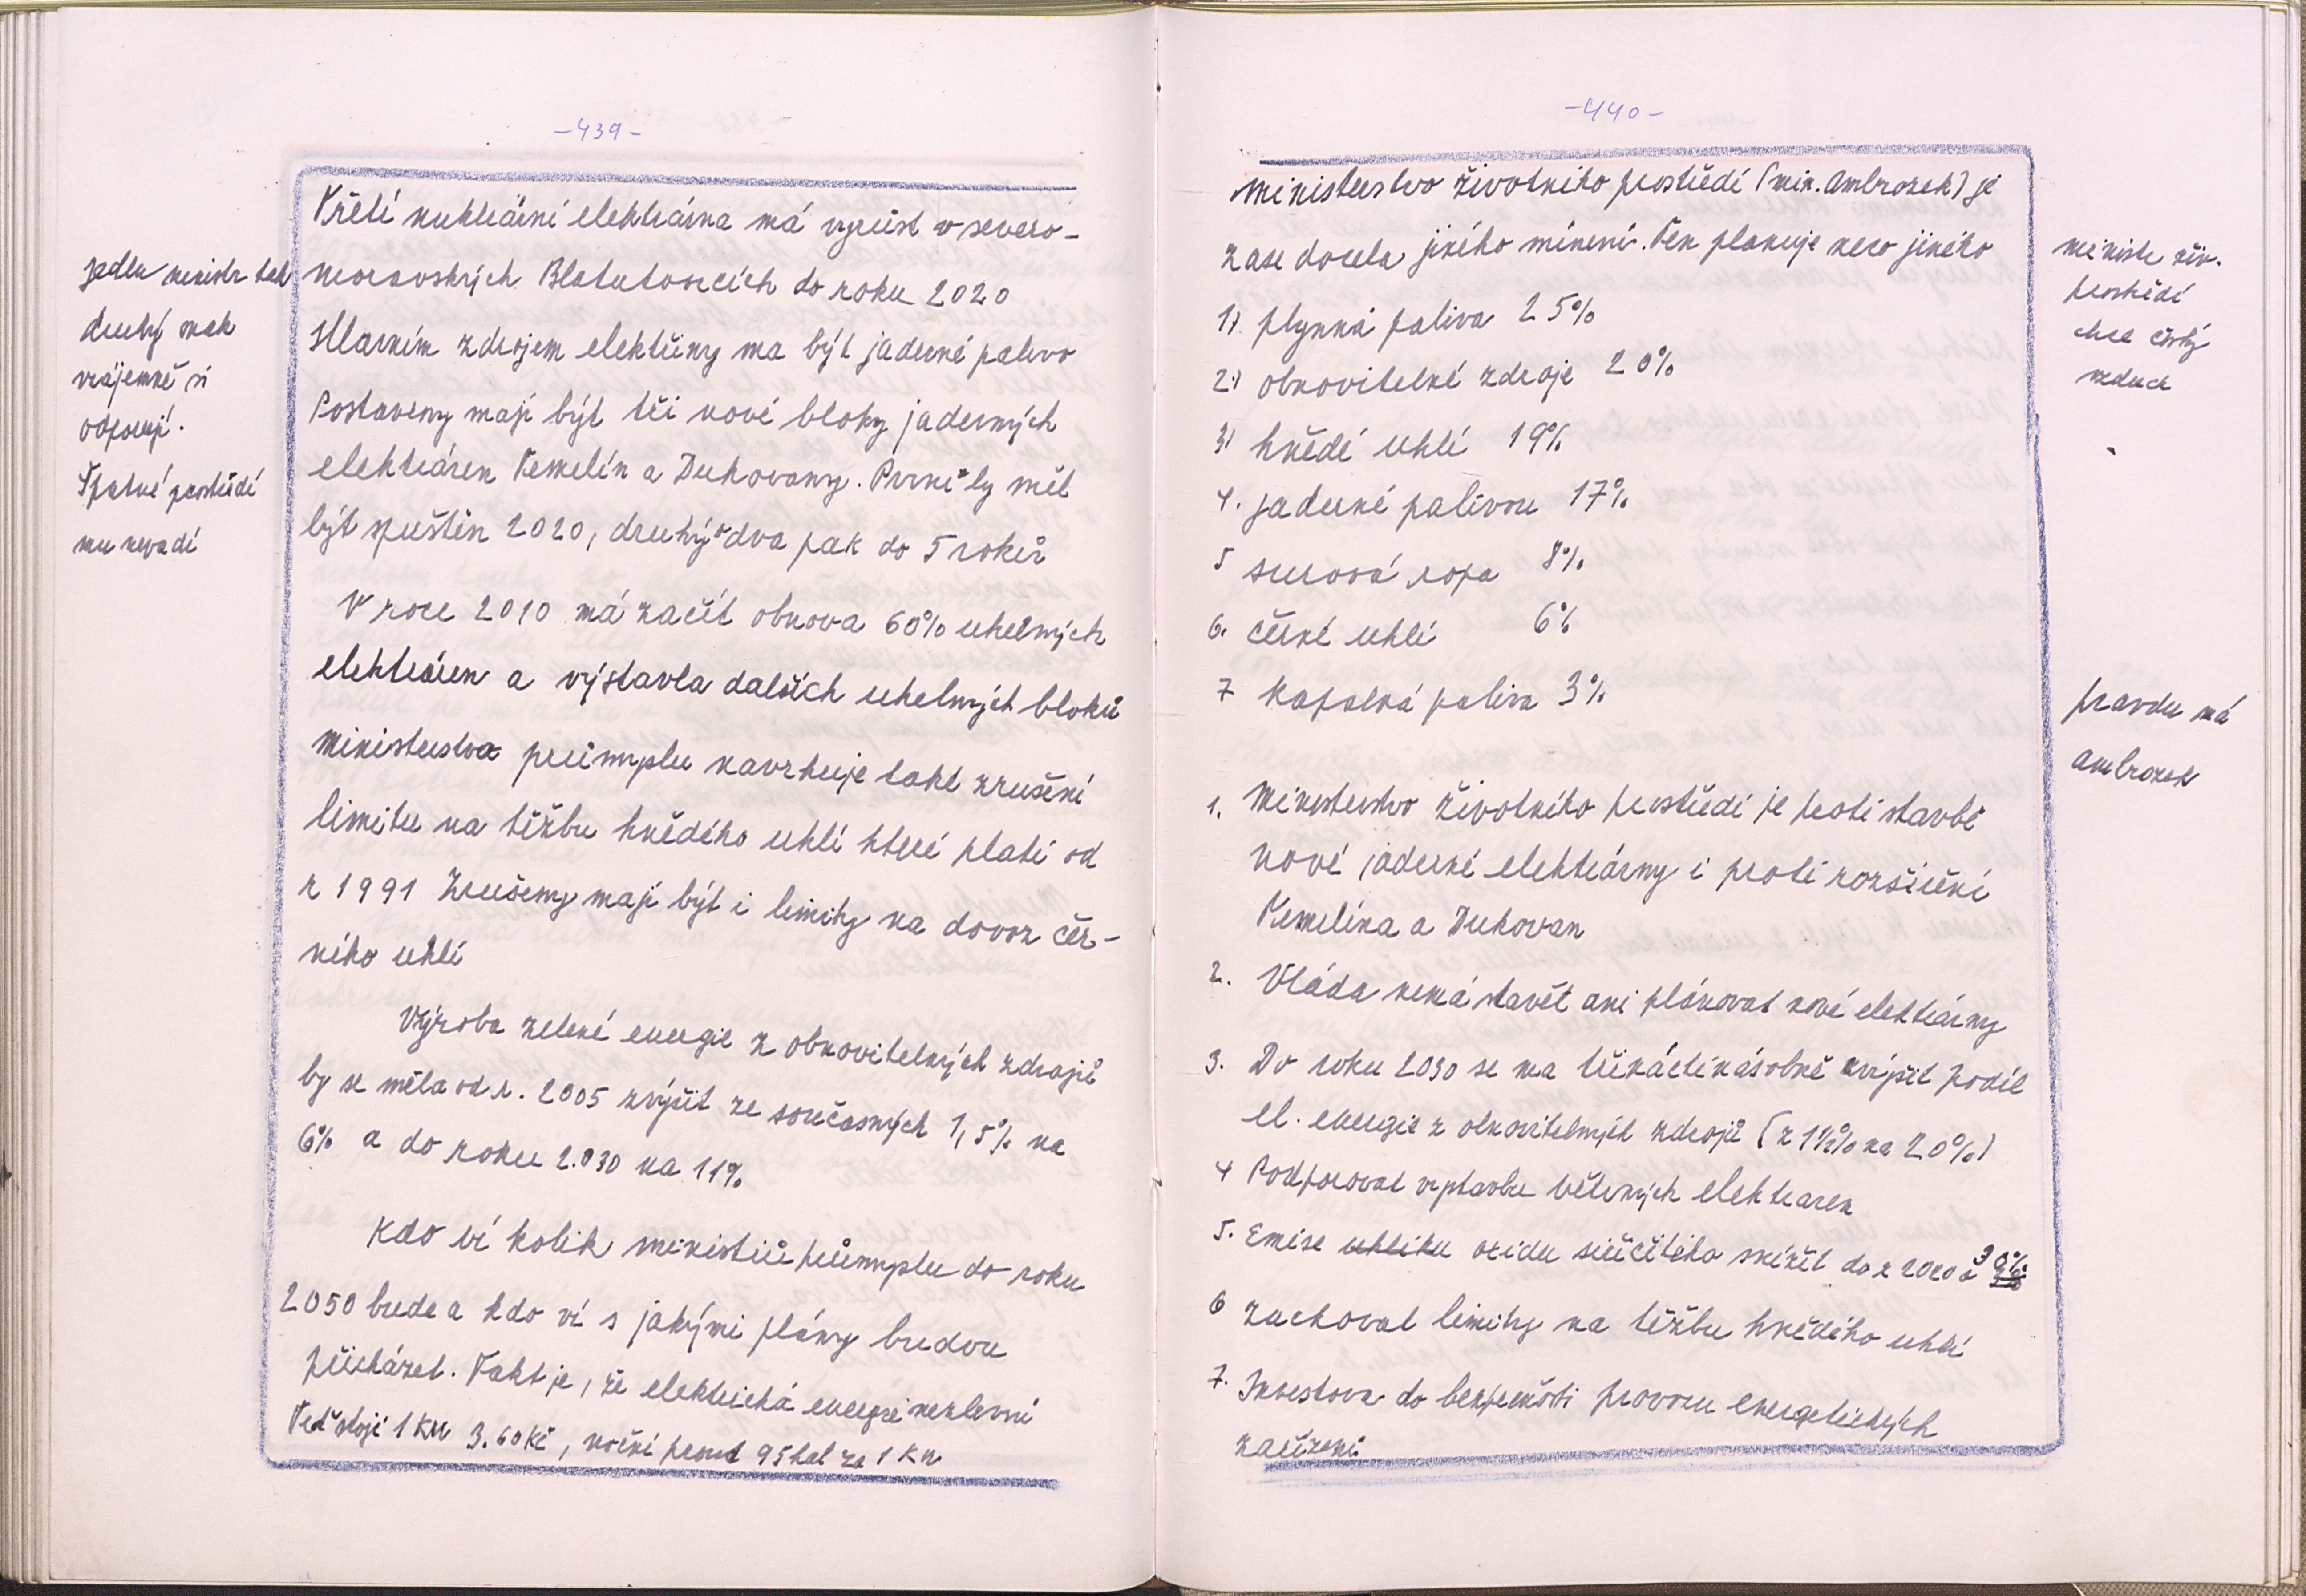 -439-
jeden ministr tak
druhý onak
vzájemně si
odporují.
Špatné prostředí
mu nevadí
Třetí nukleární elektrárna má vyrůst v severo-
moravských Blahutovicích do roku 2020
Hlavním zdrojem elektřiny ma být jaderné palivo
Postaveny mají být tři nové bloky jaderných
elektráren Temelín a Dukovany. První by měl
být spuštěn 2020, druhý dva pak do 5 roků
V roce 2010 má začít obnova 60% uhelných
elektráren a výstavba dalších uhelných bloků
Ministerstvo průmyslu navrhuje také zrušení
limitu na těžbu hnědého uhlí které platí od
r 1991 Zrušeny mají být i limity na dovoz čer-
ného uhlí
Výroba zelené energie z obnovitelných zdrojů
by se měla od r. 2005 zvýšit ze současných 1,5% na
6% a do roku 2.030 na 11%
Kdo ví kolik ministrů průmyslu do roku
2050 bude a kdo ví s jakými plány budou
přicházet. Fakt je, že elektrická energie nezlevní
Teď stojí 1 KW 3.60 Kč, noční proud 95 hal za 1 Kw
-440-
Ministerstvo životního prostředí (min. Ambrozek) je
zase docela jiného mínení. Ten planuje neco jiného
1). plynná paliva 25%
2.) obnovitelné zdroje 20%
3) hnědé uhlí 19%
4. jaderné palivou 17%
5 surová ropa 8%
6. černé uhlí 6%
7 kapalná paliva 3%
1. Ministerstvo životního prostředí je proti stavbě
nové jaderné elektrárny i proti rozšíření
Temelína a Dukovan
2. Vláda nemá stavět ani plánovat nové elektrárny
3. Do roku 2030 se ma třináctinásobně zvýšit podíl
el. energie z obnovitelných zdrojů (z 1½% na 20%)
4 Podporovat výstavbu větrných elektraren
5. Emise uhlíku oxidu siřičitého snížit do r 2020 o 30%
6 zachovat limity na těžbu hnědého uhlí
7. Investova do bezpečnosti provozu energetických
zařízení
ministr živ.
prostředí
chce čistý
vzduch
pravdu má
Ambrozek